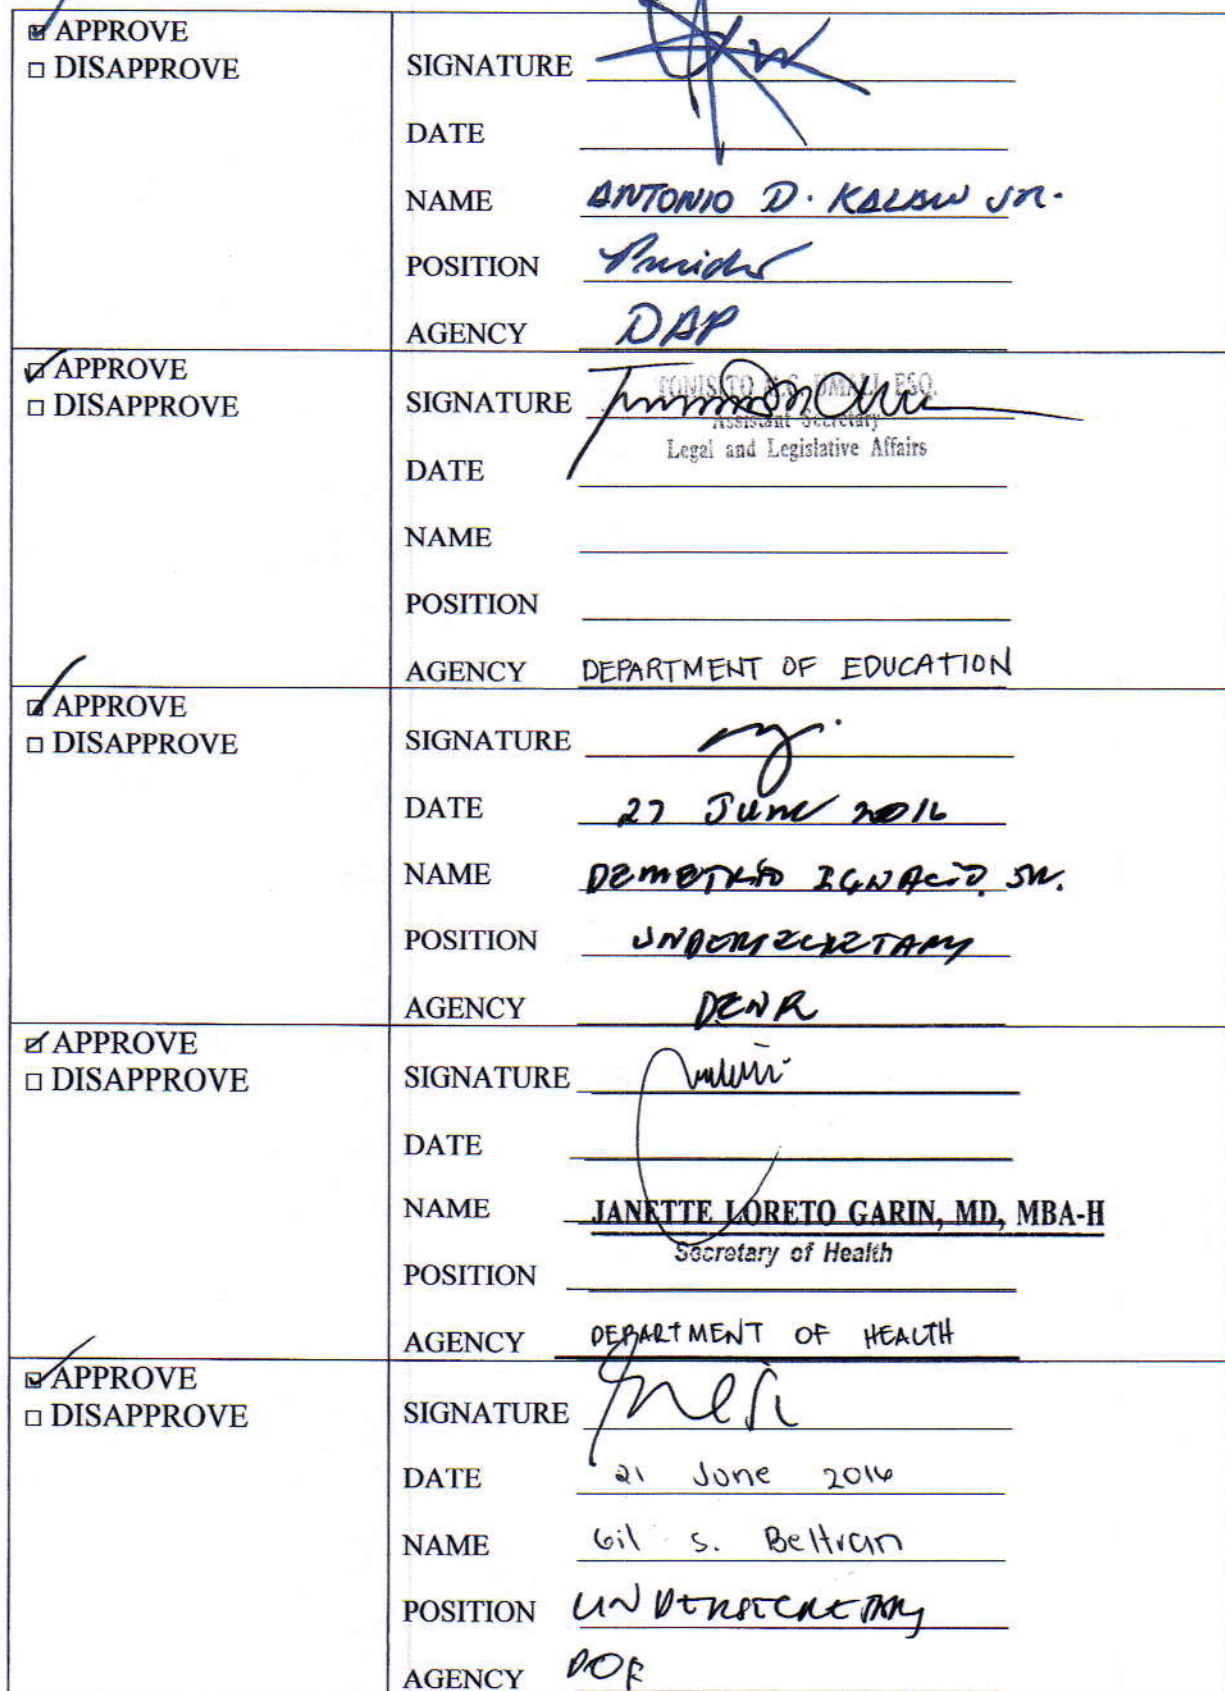 APPROVE
DISAPPROVE
SIGNATURE
DATE
NAME ANTONIO D. KALAW JR.
POSITION President
AGENCY DAP
APPROVE
DISAPPROVE
SIGNATURE TONISITO M.C. UMALI, ESQ.
Assistant Secretary
Legal and Legislative Affairs
DATE
NAME
POSITION
AGENCY DEPARTMENT OF EDUCATION
APPROVE
DISAPPROVE
SIGNATURE
DATE 27 June 2016
NAME DEMETRIO IGNACIO, JR.
POSITION UNDERSECRETARY
AGENCY DENR
APPROVE
DISAPPROVE
SIGNATURE
DATE
NAME JANETTE LORETO GARIN, MD, MBA-H
Secretary of Health
POSITION
AGENCY DEPARTMENT OF HEALTH
APPROVE
DISAPPROVE
SIGNATURE
DATE 21 June 2016
NAME Gil S. Beltran
POSITION UNDERSECRETARY
AGENCY DOF